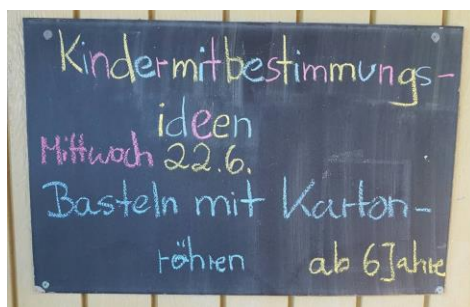 Kindermitbestimmungs-
ideen
Mittwoch 22.6.
Basteln mit Karton-
röhren ab 6 Jahre